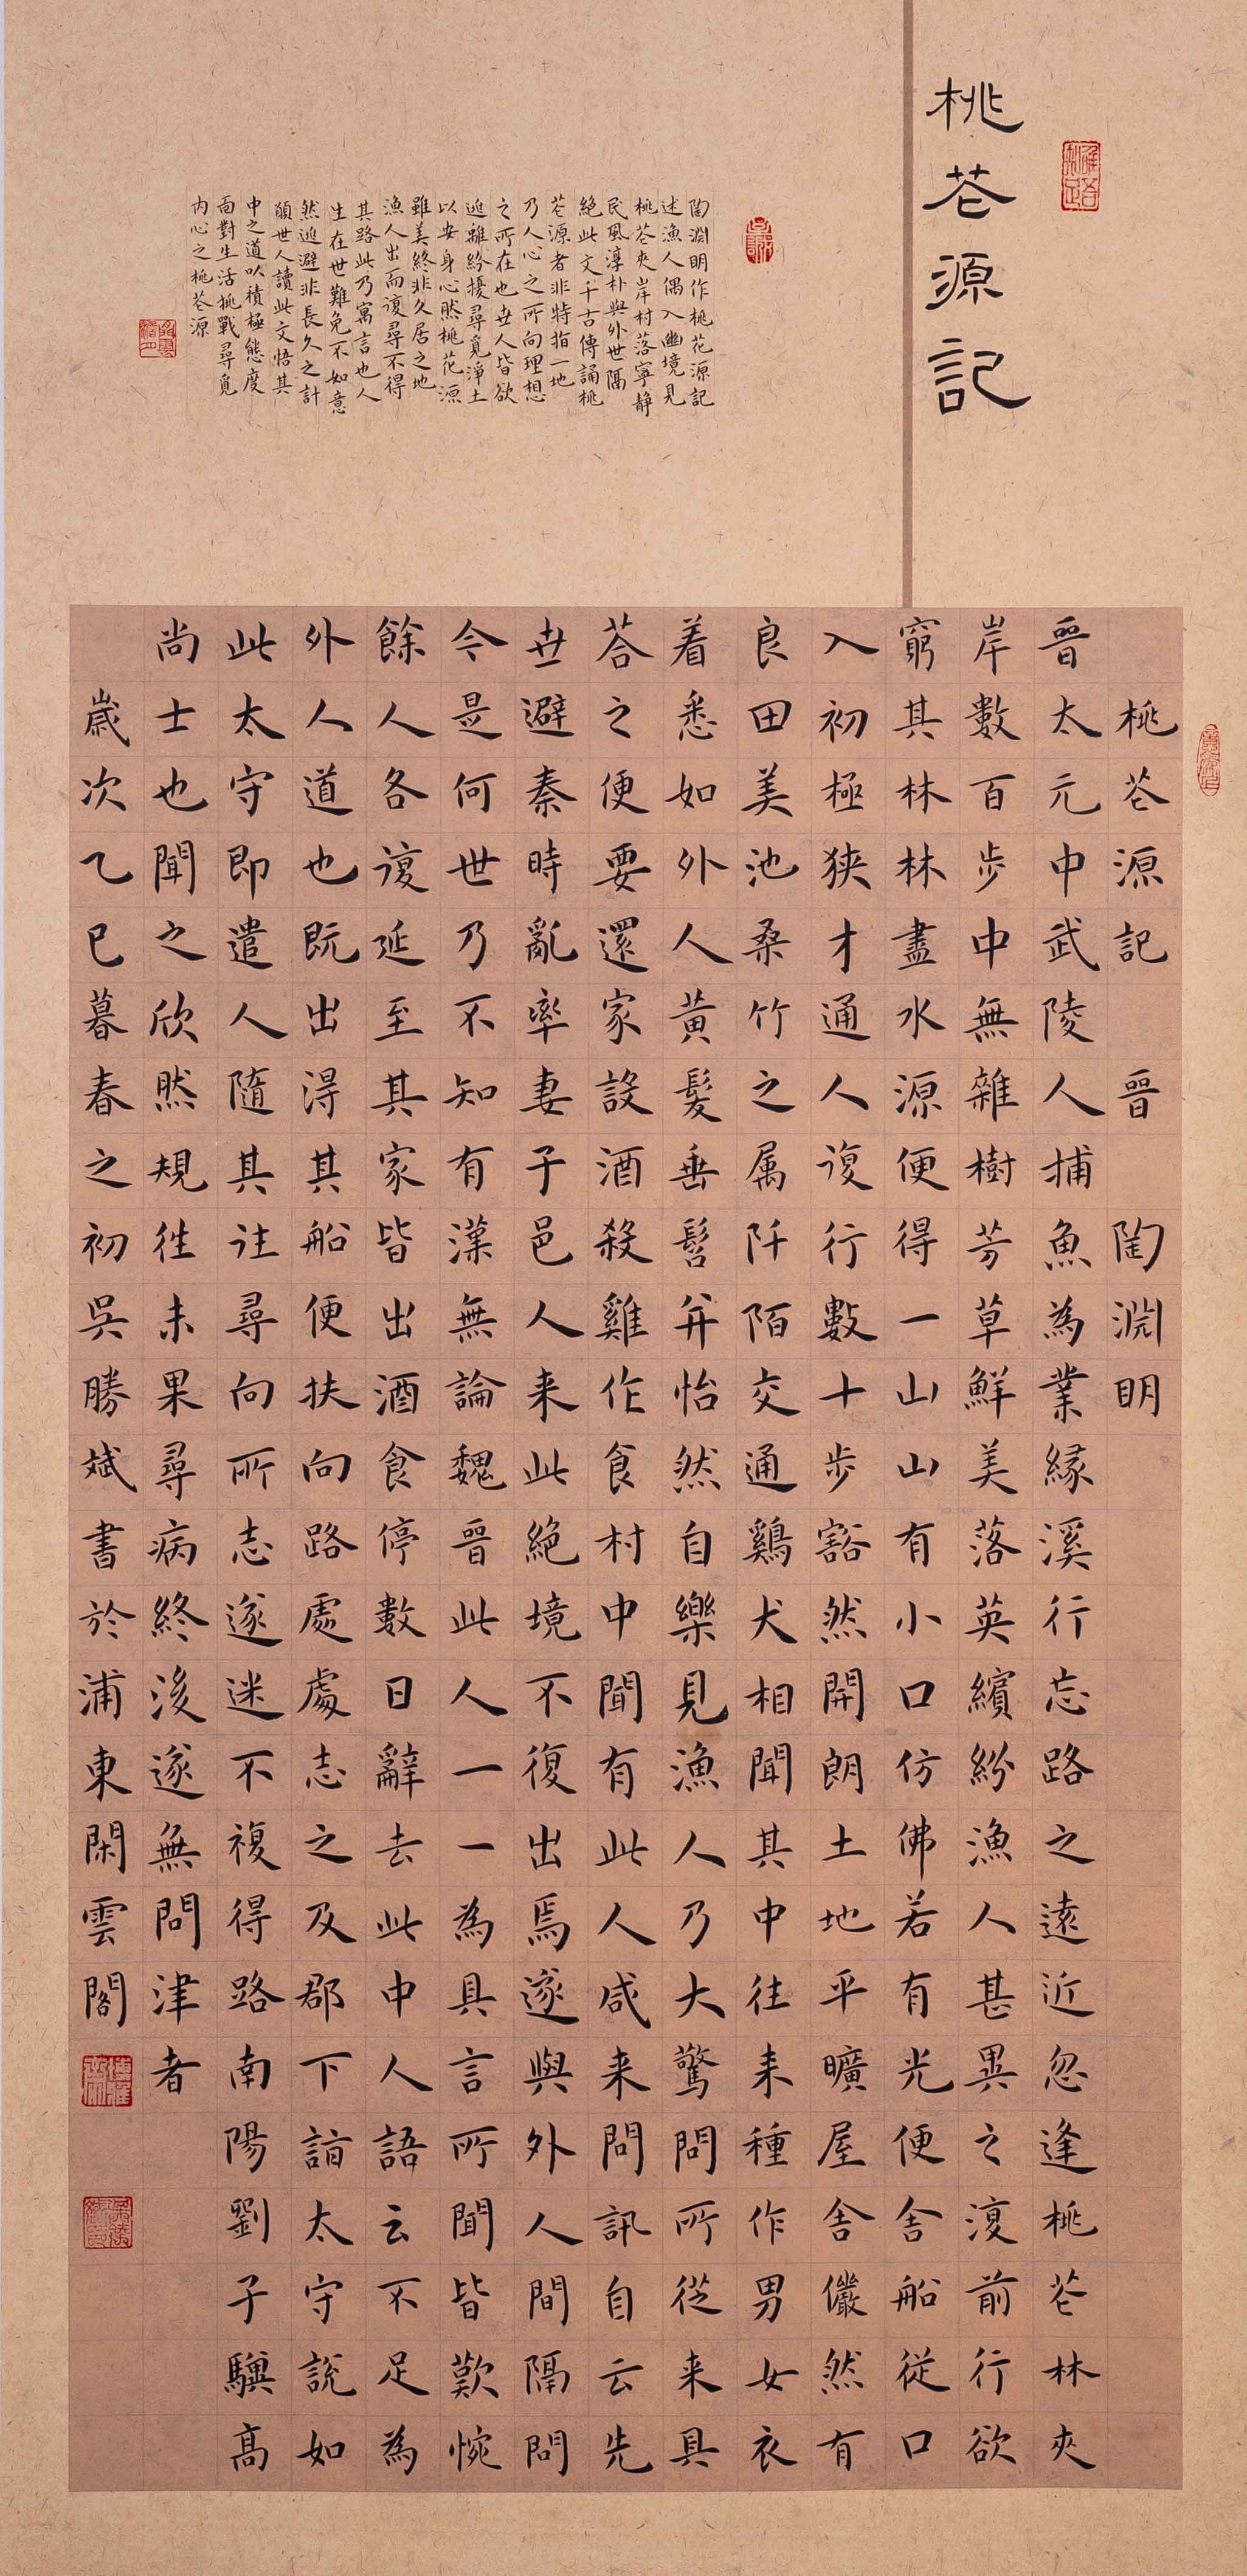 桃花源記
陶淵明作桃花源記
述漁人偶入幽境見
桃花夾岸村落寧静
民風淳朴與外世隔
絕此文千古傳誦桃
花源者非特指一地
乃人心之所向理想
之所在也世人皆欲
逃離紛擾尋覓淨土
以安身心然桃花源
雖美終非久居之地
漁人出而復尋不得
其路此乃寓言也人
生在世難免不如意
然逃避非長久之計
願世人讀此文悟其
中之道以積極態度
面對生活挑戰尋覓
内心之桃花源
桃花源記 晉 陶淵明
晉太元中武陵人捕魚為業緣溪行忘路之遠近忽逢桃花林夾
岸數百步中無雜樹芳草鮮美落英繽紛漁人甚異之復前行欲
窮其林林盡水源便得一山山有小口仿佛若有光便舍船從口
入初極狹才通人復行數十步豁然開朗土地平曠屋舍儼然有
良田美池桑竹之属阡陌交通鷄犬相聞其中往来種作男女衣
着悉如外人黃髮垂髫并怡然自樂見漁人乃大驚問所從来具
荅之便要還家設酒殺雞作食村中聞有此人咸来問訊自云先
世避秦時亂率妻子邑人来此絕境不復出焉遂與外人間隔問
今是何世乃不知有漢無論魏晉此人一一為具言所聞皆歎惋
餘人各復延至其家皆出酒食停數日辭去此中人語云不足為
外人道也既出得其船便扶向路處處志之及郡下詣太守說如
此太守即遣人隨其往尋向所志遂迷不複得路南陽劉子驥高
尚士也聞之欣然規往未果尋病終後遂無問津者
歲次乙巳暮春之初吳勝斌書於浦東閑雲閣